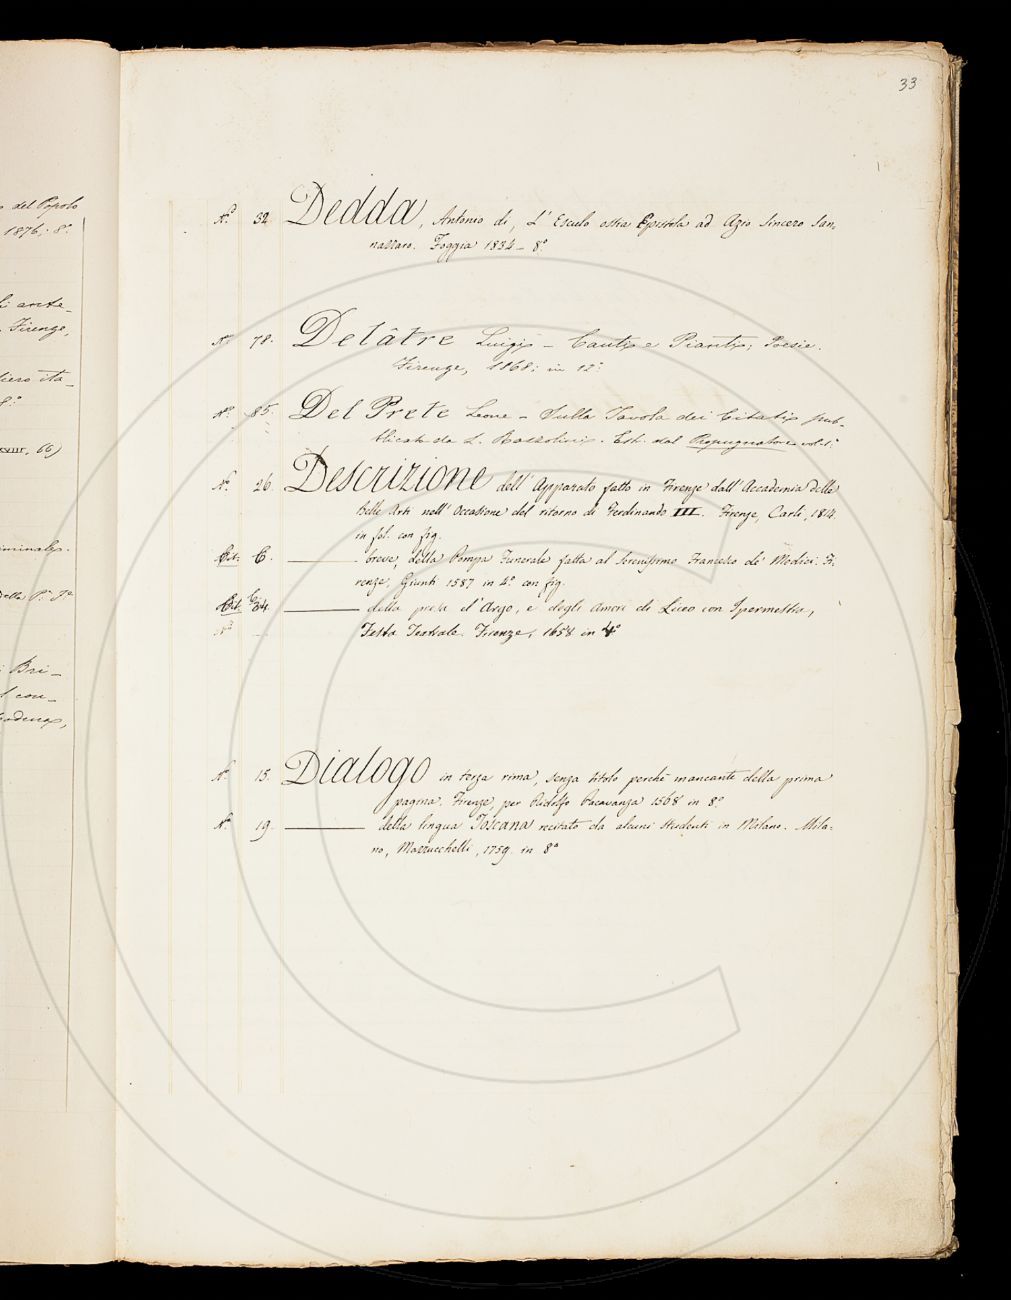 33
N.º 32 Dedda, Antonio di, L' Esculo ossia Epistola ad Azio Sincero San-
nazzaro. Foggia 1834 - 8º
N.º 78. Delâtre Luigi - Canti e Pianti; Poesie.
Firenze, 1868; in 12º
N.º 85. Del Prete Leone - Sulla Tavola dei Citati pub-
blicata da L. Razzolini. Est. dal Propugnatore vol. 1.º
N.º 26. Descrizione dell' Apparato fatto in Firenze dall' Accademia delle
Belle Arti nell' Occasione del ritorno di Ferdinando III. Firenze, Carli, 1814.
in fol. con fig.
Cit. C. ——— breve, della Pompa Funerale fatta al Serenissimo Francesco de' Medici. Fi-
renze, Giunti 1587 in 4º con fig.
Cit. 34. ——— della presa d'Argo, e degli Amori di Linceo con Ipermestra,
Nº — Festa Teatrale. Firenze, 1658 in 4º
N.º 15. Dialogo in terza rima, senza titolo perchè mancante della prima
pagina. Firenze, per Ridolfo 1568 in 8º
N.º 19. ——— della lingua Toscana recitato da alcuni Studenti in Milano. Mila-
no, Mazzucchelli, 1759. in 8º
del Popolo
1876; 8º
ante-
Firenze,
ita-
8º
XVIII, 66)
Bri-
con-